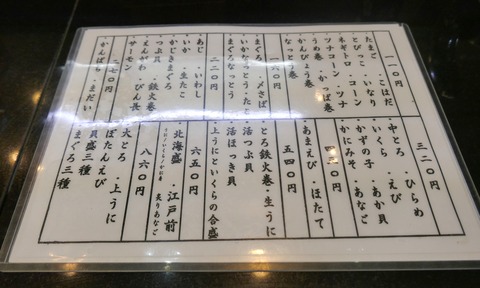 一一〇円
たまご・こはだ
とびっこ・いなり
ネギトロ・コーン
ツナコーン・ツナ
うめ巻・かっぱ巻
かんぴょう巻
なっとう巻
一六〇円
まぐろ・〆さば
いかなっとう・たこ
まぐろなっとう
二二〇円
あじ・いわし
いか・生たこ
かじきまぐろ
つぶ貝・鉄火巻
えんがわ・びん長
サーモン
二七〇円
かんぱち・まだい
三二〇円
ひらめ
中とろ・えび
いくら・あか貝
かずの子・あなご
かにみそ
〇円
あまえび・ほたて
五四〇円
とろ鉄火巻・生うに
活つぶ貝
活ほっき貝
上うにといくらの合盛
六五〇円
北海盛・江戸前
炙りあなご
八六〇円
大とろ・上うに
ぼたんえび
貝盛三種
まぐろ三種